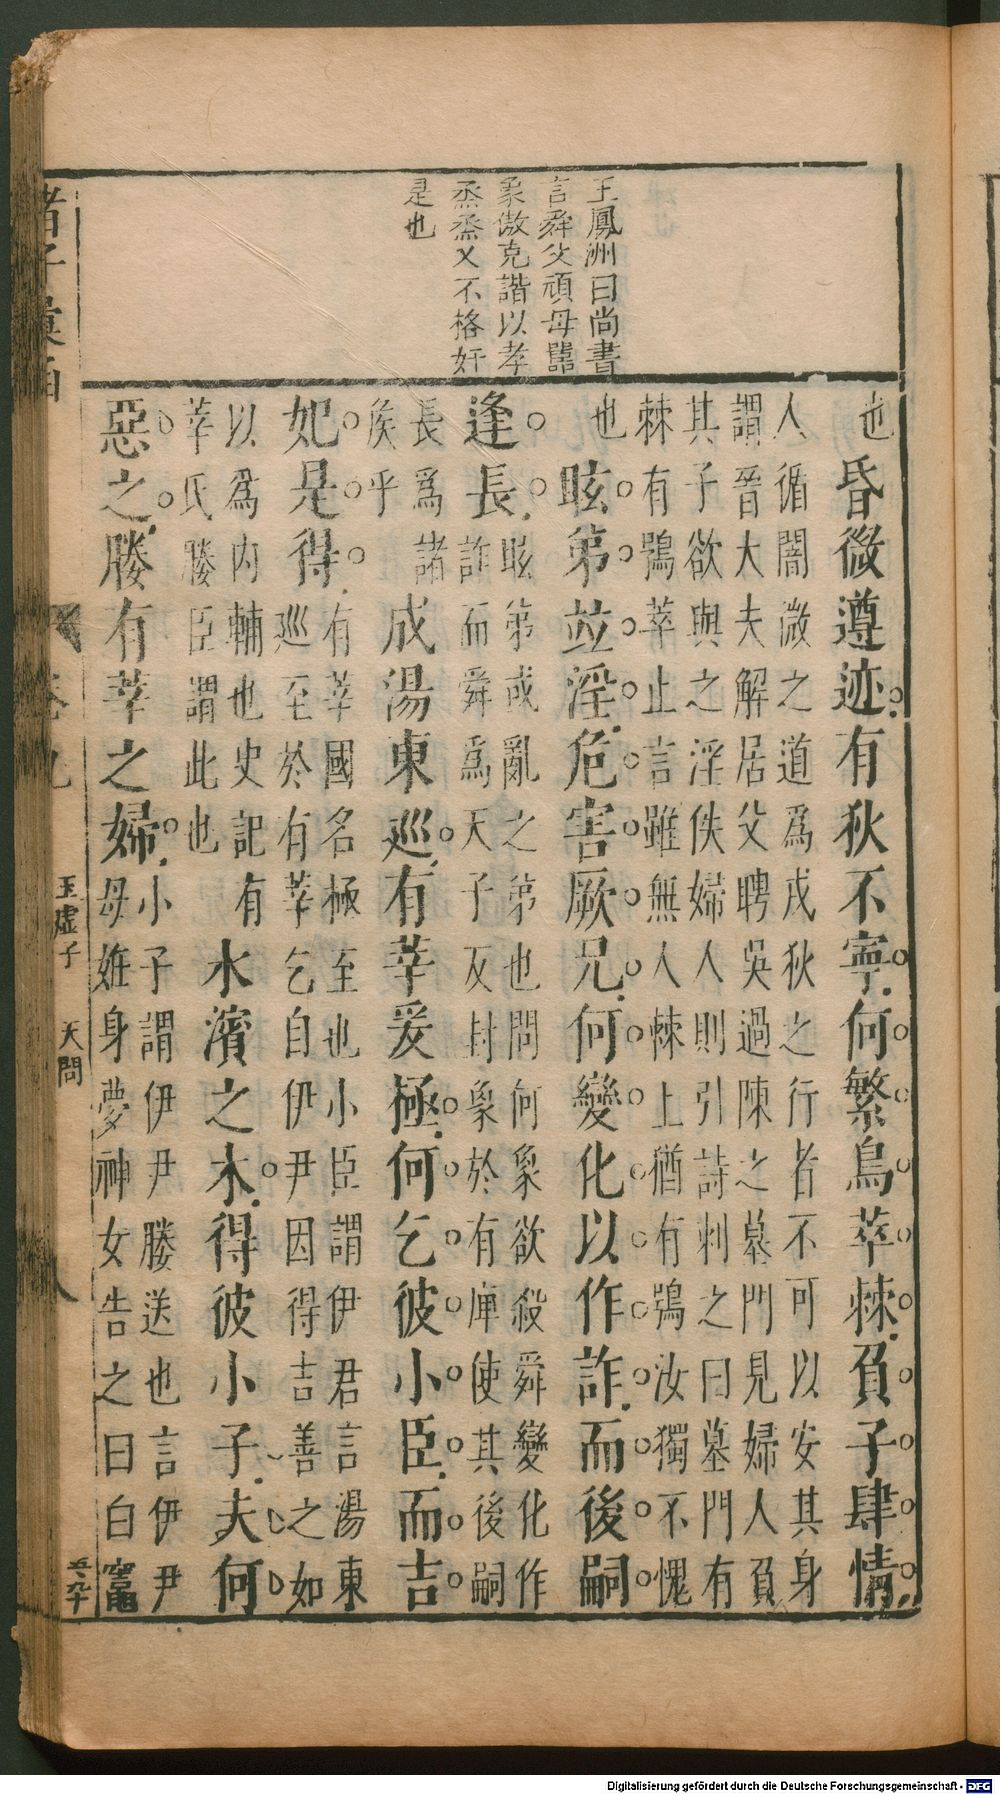 王鳳洲曰尚書
言舜父頑母嚚
象傲克諧以孝
烝烝乂不格奸
是也
也昏微遵迹有狄不寧何繁鳥萃棘負子肆情
人循闇微之道為戎狄之行者不可以安其身
謂晉大夫解居父聘吳過陳之墓門見婦人負
其子欲與之淫佚婦人則引詩刺之曰墓門有
棘有鴞萃止言雖無人棘上猶有鴞汝獨不愧
也眩第並淫危害厥兄何變化以作詐而後嗣
逢長
眩第或亂之弟也問何象欲殺舜變化作
詐而舜爲天子反封象於有庳使其後嗣
長爲諸
矦乎
成湯東巡有莘爰極何乞彼小臣而吉
妃是得
有莘國名極至也小臣謂伊君言湯東
巡至於有莘乞自伊尹因得吉善之如
以爲内輔也史記有
莘氏媵臣謂此也
水濱之木得彼小子夫何
惡之媵有莘之婦
小子謂伊尹媵送也言伊尹
母姙身夢神女告之曰白竈
諸子彙函
卷九
玉虛子 天問
八
Digitalisierung gefördert durch die Deutsche Forschungsgemeinschaft - DFG